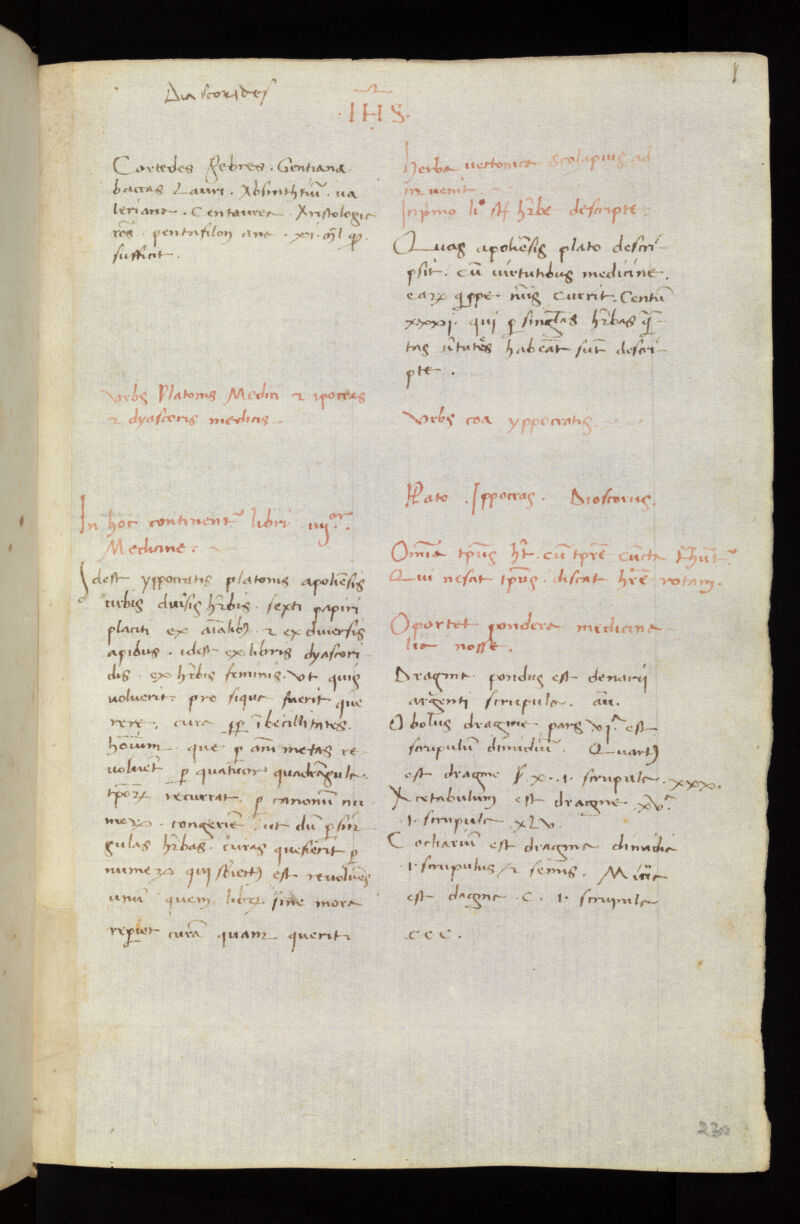 Diascorides
1
·IHS·
Cortedes febres · Gentiana
baccas Lauri · Absinthiũ · ua
leriana · Centaurea · Aristologia
pentafilon ana · xi · mł
sufficit ·
Urbs Platonis Medici & ipocras
& dyascoris medicis ·
In hoc continent᷑ libri iiijor ·
Medicine : ~
Idest yppocratis platonis apoliẽsis
urbis diuīsis hr̃bis · sexti papiri
placiti ex aĩalib; · & ex diuersis
apibus · idest ex libris dyascori
dis · ex hr̃bis feminis · Vt quis
voluerit pro siqua fuerit que
rere · cura ꝑꝑ ĩbecillitates ·
hoĩum · que ꝑ añi metas re
voluẽt ꝑ quatuor quadrãgula ·
tp̃orꝝ recurrat · ꝑ canonũ nu
merꝝ · congeriẽ ut dũ ꝑ sin
gulas hr̃bas · curas quesierit ꝑ
numerꝝ est reuoluẽs
unũ quem librꝝ sine mora
reꝑiet curã quam querit ·
herba uetonica Scolapius ad
inuenit ·
Inprimo li° st̃ hr̃be descripte :
Quas apoliẽsis plato descri-
psit · cũ uirtutibus medicine ·
earꝝ qꝑpe nũ̃s currit · Centũ
xxxi · qui ꝑ singłas hr̃bas q̃
tas ũtates habeãt sunt descri-
pte ·
Urbs coa yppocratis ·
Plato · Ippocras · Dioscorus ·
Omĩa tp̃us ht̃ · cũ tp̃re cũcta
Qui nescit tp̃us · discat hr̃e rotam ·
Oportet pondera medicina
lia nosse ·
Dragma pondus est denarii
argenti scrupula · aũ ·
Obolus dragme pars vi^a est
scrupulũ dimidiũ · Quart;
est dragme · x · i · scrupula · xxx ·
Acetabulum est dragme xv^a
· i · scrupula xlv ·
Cocliariũ est dragma dimidia
· i · scrupulus & semis · Mina
est dagma · c · i · scrupula
ccc ·
230